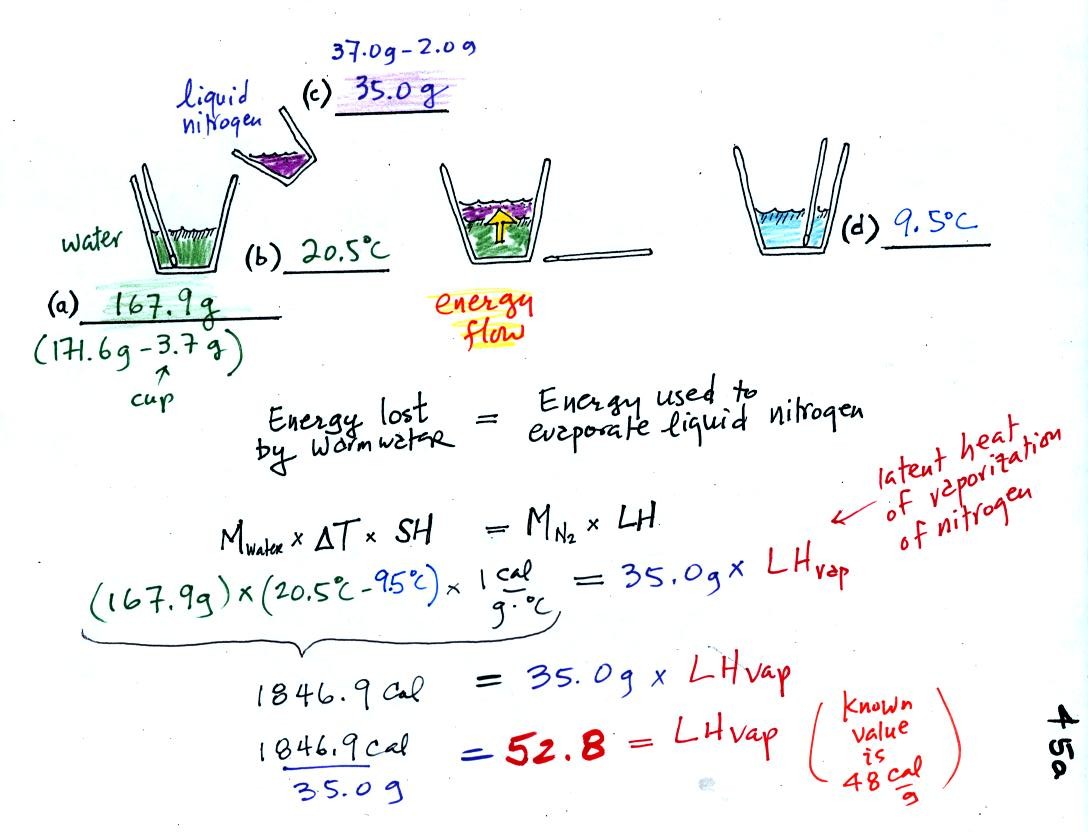 37.0g - 2.0g
(c) 35.0 g
liquid
nitrogen
water
(b) 20.5°C
(d) 9.5°C
(a) 167.9g
(171.6g - 3.7 g)
↑
cup
energy
flow
Energy lost
by warm water
=
Energy used to
evaporate liquid nitrogen
latent heat
of vaporization
of nitrogen
M water × ΔT × SH = M N2 × LH
(167.9g) × (20.5°C - 9.5°C) × 1 cal/g·°C = 35.0g × LH vap
1846.9 cal = 35.0g × LH vap
1846.9 cal / 35.0 g = 52.8 = LH vap
(known
value
is
48 cal/g)
45a